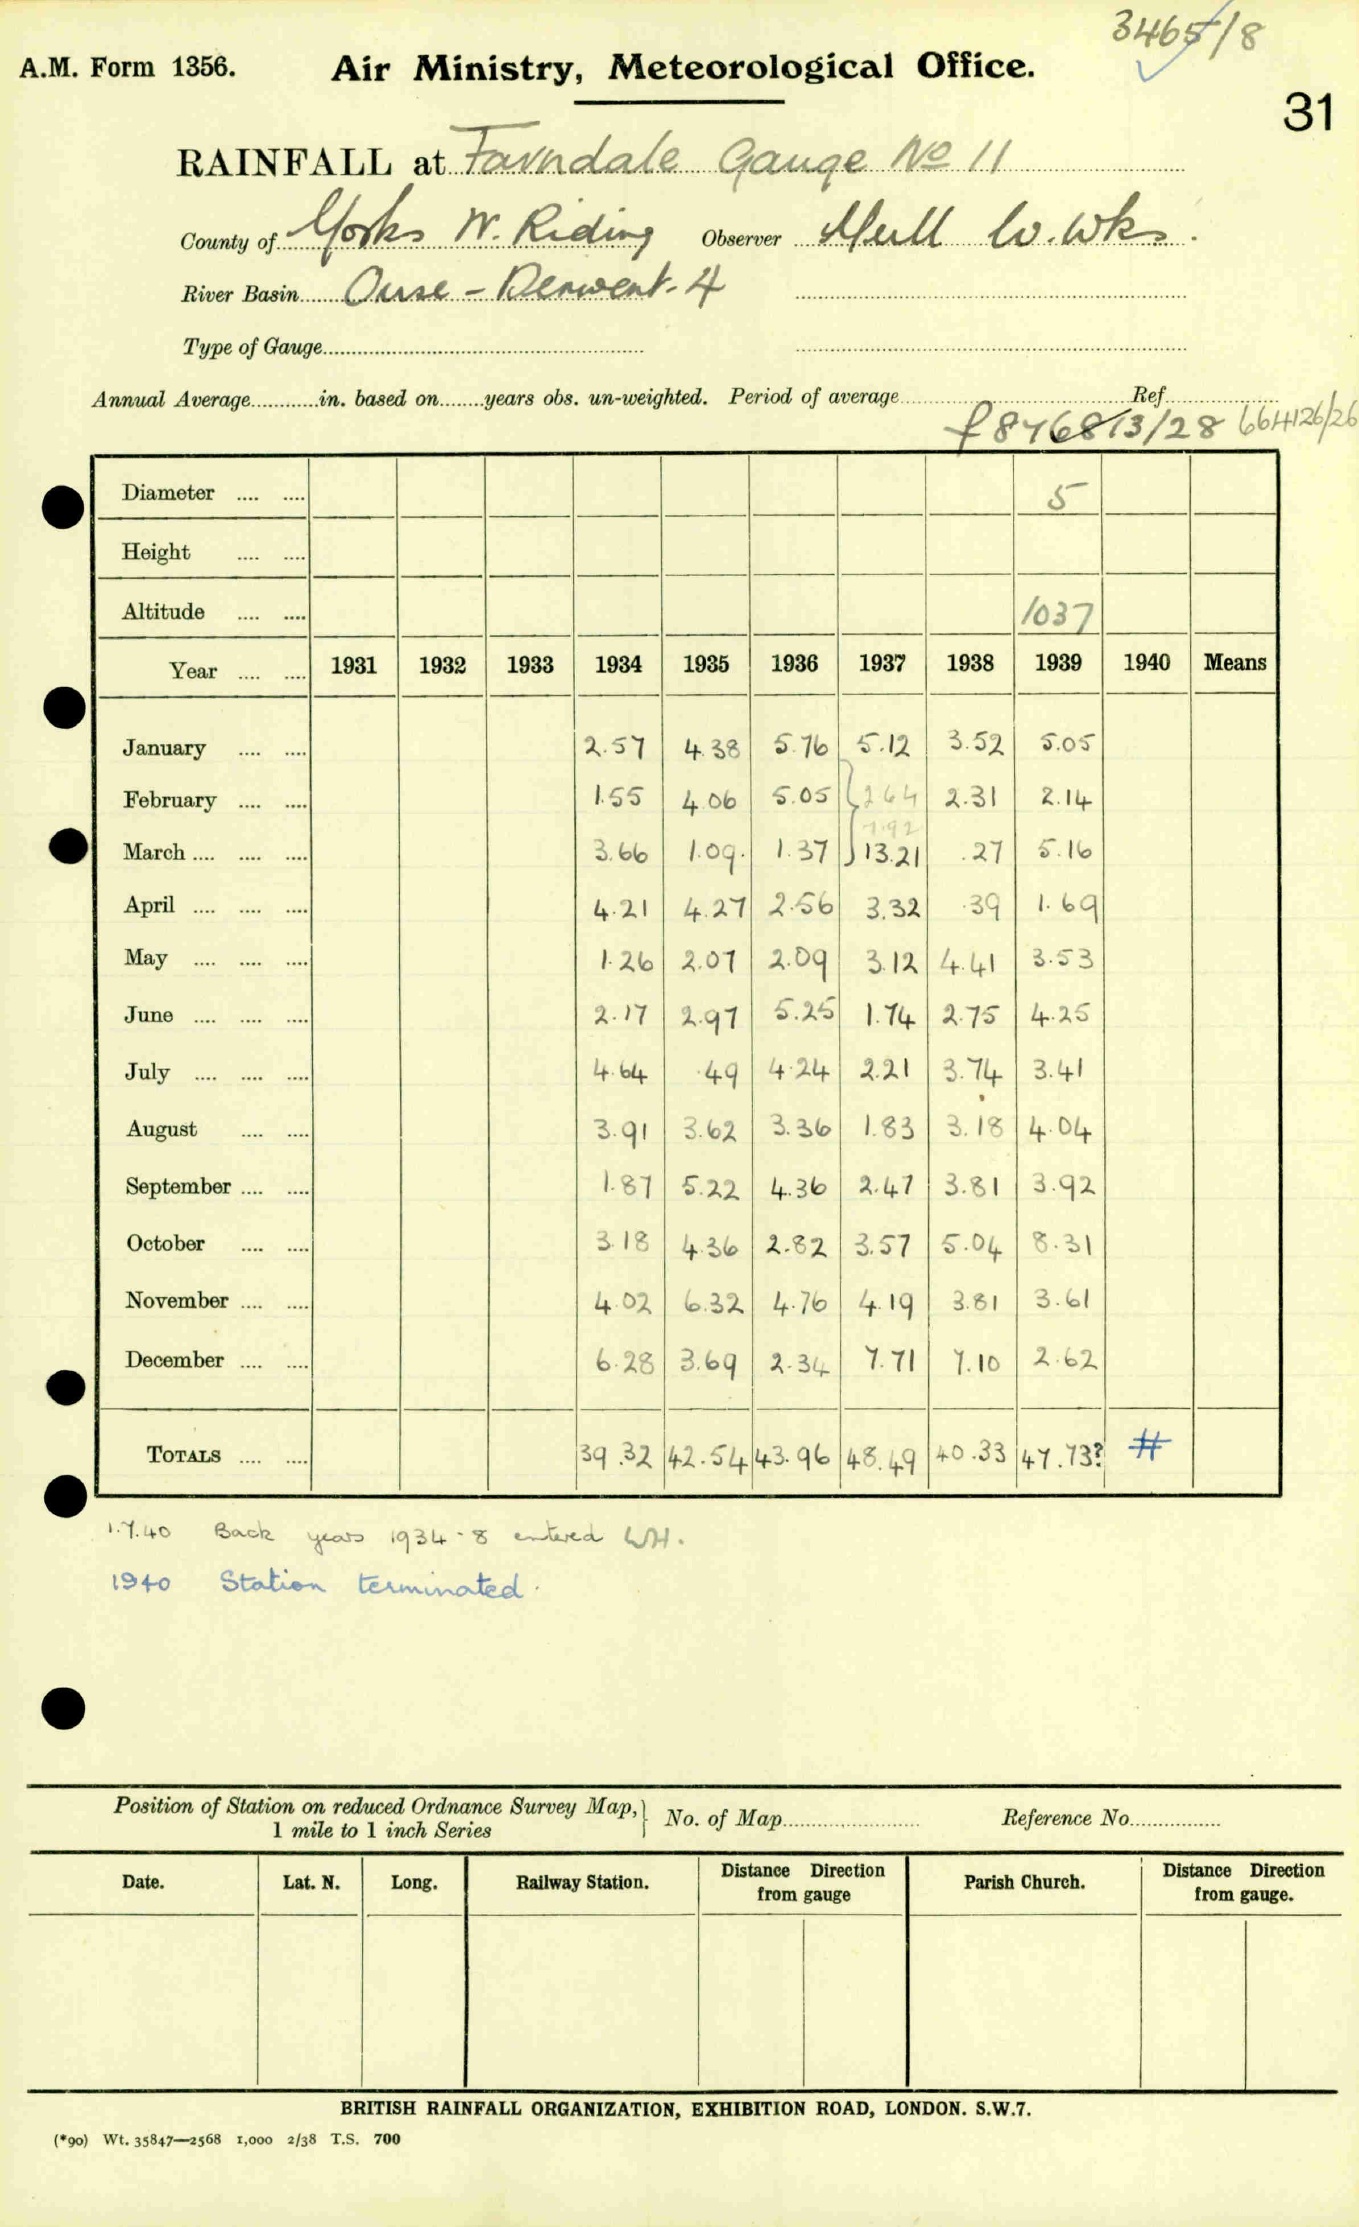 3465/8
A.M. Form 1356. Air Ministry, Meteorological Office.
31
RAINFALL at Farndale Gauge No 11
County of Yorks N. Riding Observer Hull W. Wks.
River Basin Ouse - Derwent. 4
Type of Gauge
Annual Average in. based on years obs. un-weighted. Period of average Ref
13/28 664126/26
Diameter 5
Height
Altitude 1037
Year 1931 1932 1933 1934 1935 1936 1937 1938 1939 1940 Means
January 2.57 4.38 5.76 5.12 3.52 5.05
February 1.55 4.06 5.05 2.64 2.31 2.14
7.92
March 3.66 1.09. 1.37 13.21 .27 5.16
April 4.21 4.27 2.56 3.32 .39 1.69
May 1.26 2.07 2.09 3.12 4.41 3.53
June 2.17 2.97 5.25 1.74 2.75 4.25
July 4.64 .49 4.24 2.21 3.74 3.41
August 3.91 3.62 3.36 1.83 3.18 4.04
September 1.87 5.22 4.36 2.47 3.81 3.92
October 3.18 4.36 2.82 3.57 5.04 8.31
November 4.02 6.32 4.76 4.19 3.81 3.61
December 6.28 3.69 2.34 7.71 7.10 2.62
TOTALS 39.32 42.54 43.96 48.49 40.33 47.73? #
1.7.40 Back years 1934-8 entered WH.
1940 Station terminated.
Position of Station on reduced Ordnance Survey Map, 1 mile to 1 inch Series } No. of Map Reference No.
Date. Lat. N. Long. Railway Station. Distance Direction from gauge Parish Church. Distance Direction from gauge.
BRITISH RAINFALL ORGANIZATION, EXHIBITION ROAD, LONDON. S.W.7.
(*90) Wt. 35847—2568 1,000 2/38 T.S. 700